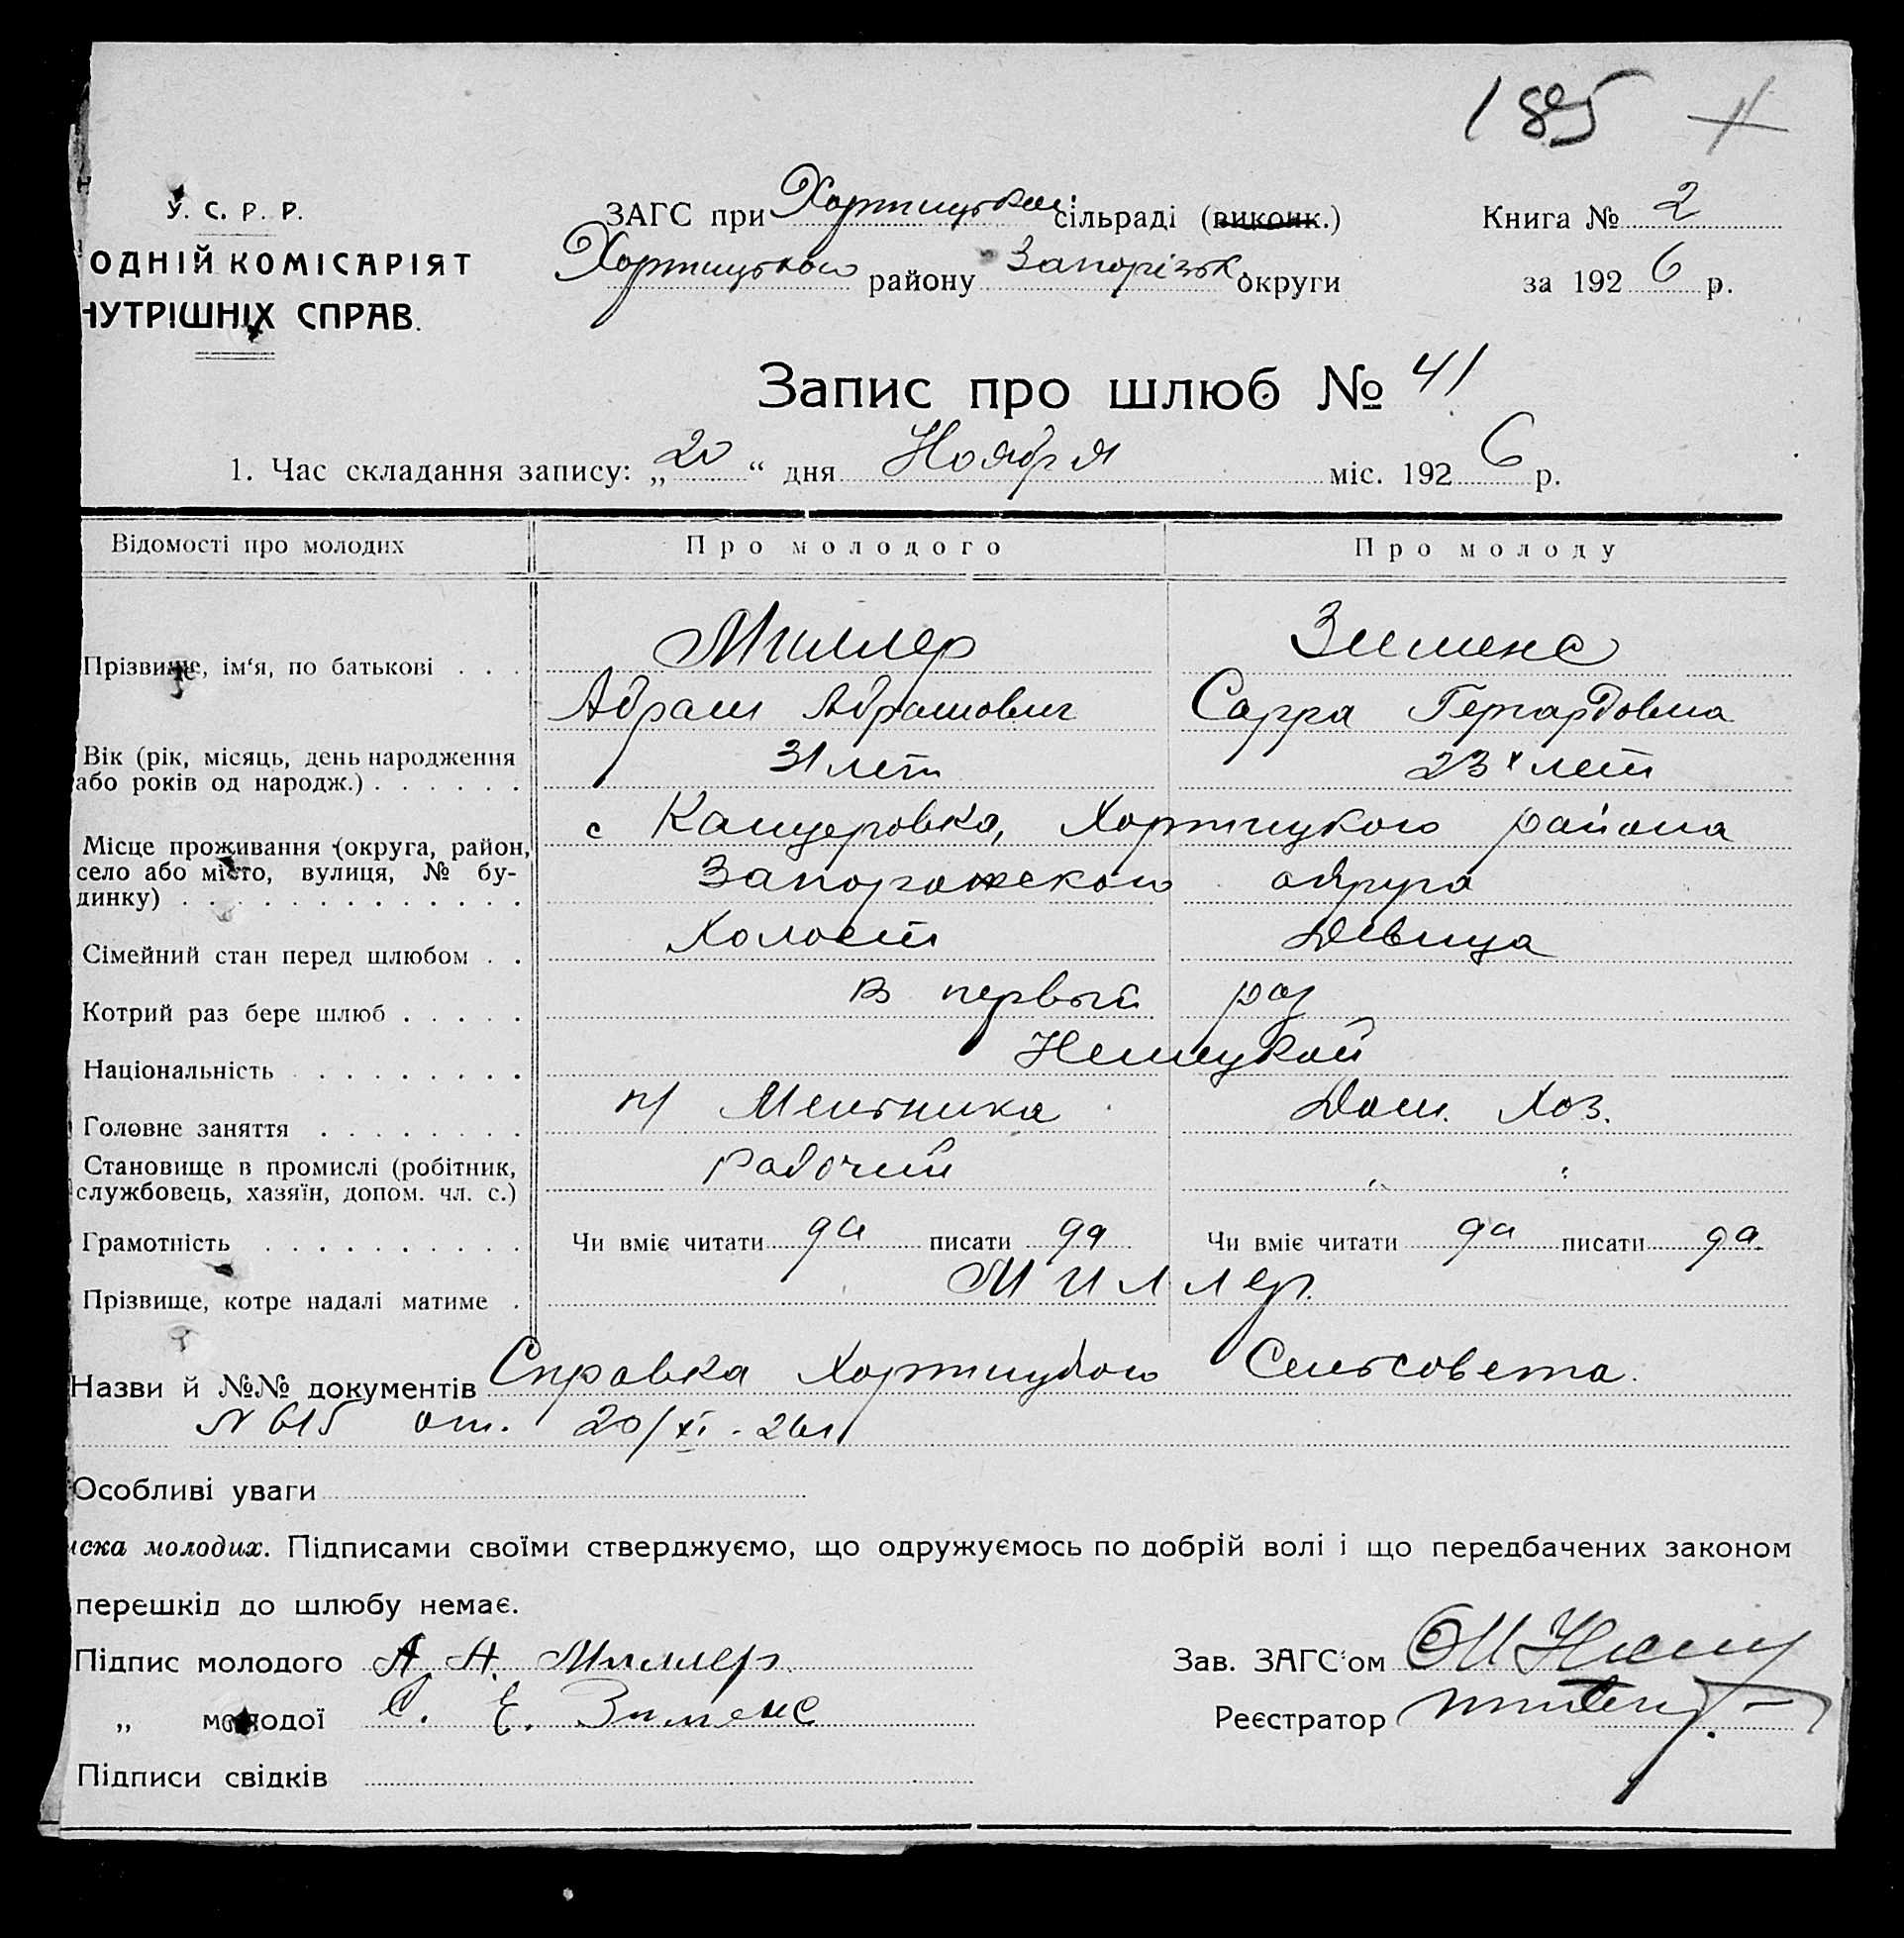 185
У. С. Р. Р.
ОДНІЙ КОМІСАРІЯТ
НУТРІШНІХ СПРАВ.
ЗАГС при Хортицькій сільраді (виконк.)
Хортицького району Запорізьк. округи
Книга № 2
за 1926 р.
Запис про шлюб № 41
1. Час складання запису: „20“ дня Ноября міс. 1926 р.
Відомості про молодих Про молодого Про молоду
Миллер Зименс
Прізвище, ім‘я, по батькові . . .
Абрам Абрамович Сарра Гергардовна
Вік (рік, місяць, день народження
або років од народж.) . . . . . .
31 лет 23х лет
с Канцеровка, Хортицкого района
Місце проживання (округа, район,
село або місто, вулиця, № бу-
динку) . . . . . . . . . . . . .
Запорожского округа
Сімейний стан перед шлюбом . . Холост Девица
Котрий раз бере шлюб . . . . . в первый раз
Національність . . . . . . . . Немецкой
Головне заняття . . . . . . . . п/ Мельника Дом. Хоз.
Становище в промислі (робітник,
службовець, хазяїн, допом. чл. с.)
рабочий „ :
Грамотність . . . . . . . . . . Чи вміє читати да писати да Чи вміє читати да писати да
Прізвище, котре надалі матиме . Миллер.
Назви й №№ документів Справка Хортицкого Сельсовета.
N 615 от. 20/XI - 26
Особливі уваги
иска молодих. Підписами своїми стверджуємо, що одружуємось по добрій волі і що передбачених законом
перешкід до шлюбу немає.
Підпис молодого А. А. Миллер
„ молодої С. Е. Зименс
Підписи свідків
Зав. ЗАГС‘ом
Реєстратор